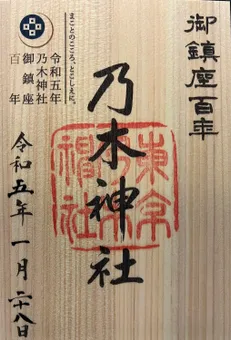 御鎮座百年
乃木神社
まことのこころ、とこしえに。
令和五年
乃木神社
御鎮座
百年
令和五年一月二十八日